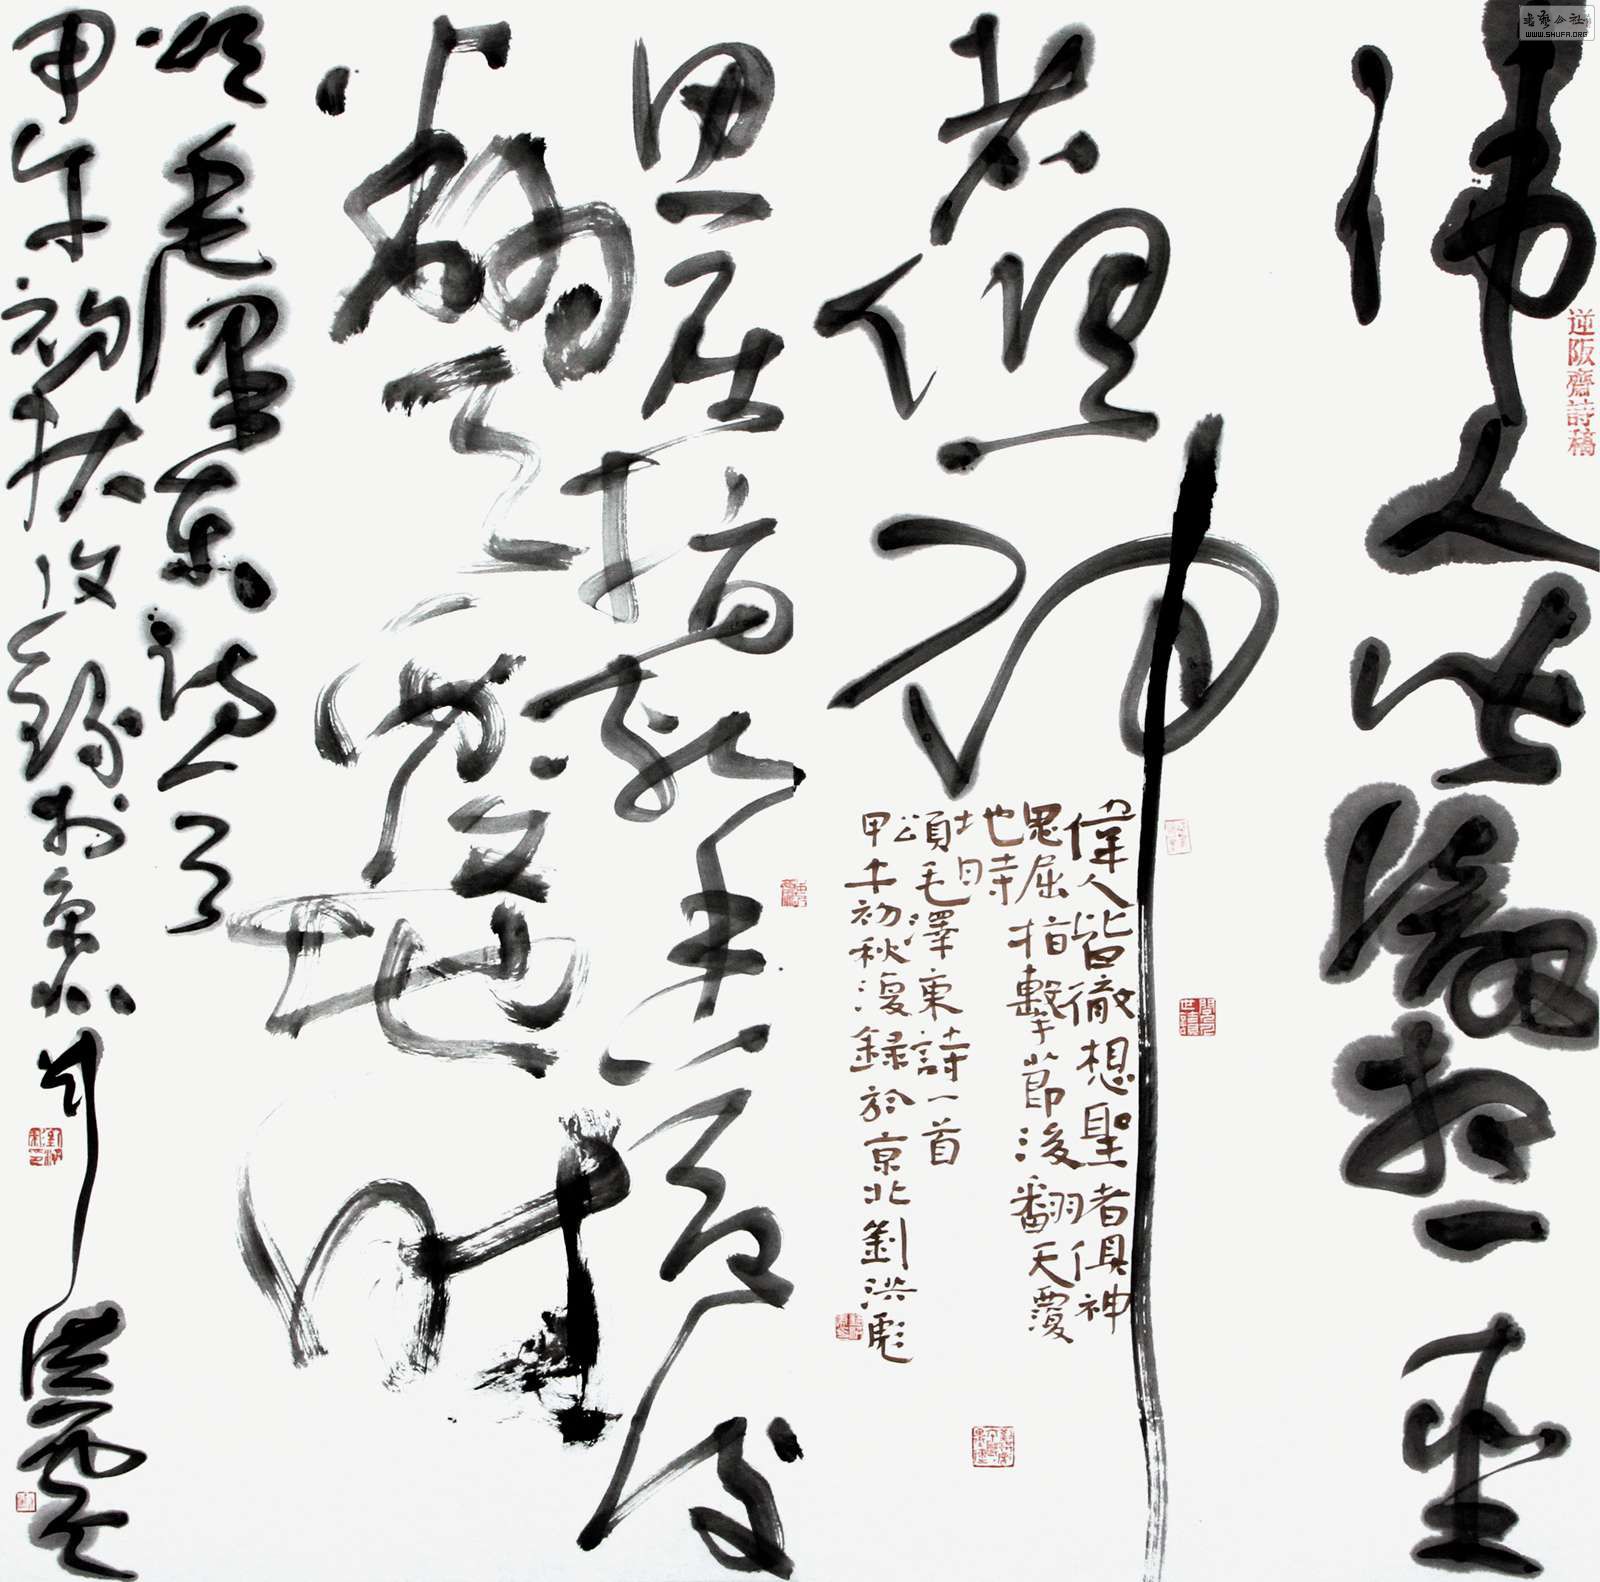 書藝公社
WWW.SHUFA.ORG
逆阪齋詩稿
偉人皆徹想聖
者俱神
偉人皆徹想聖者俱神
思屈指擊節後翻天覆
地時
頌毛澤東詩一首
甲午初秋復録於京北劉洪彪
思屈指擊節後
翻天覆地時
頌毛澤東詩一首
甲午初秋復録於京北劉洪彪